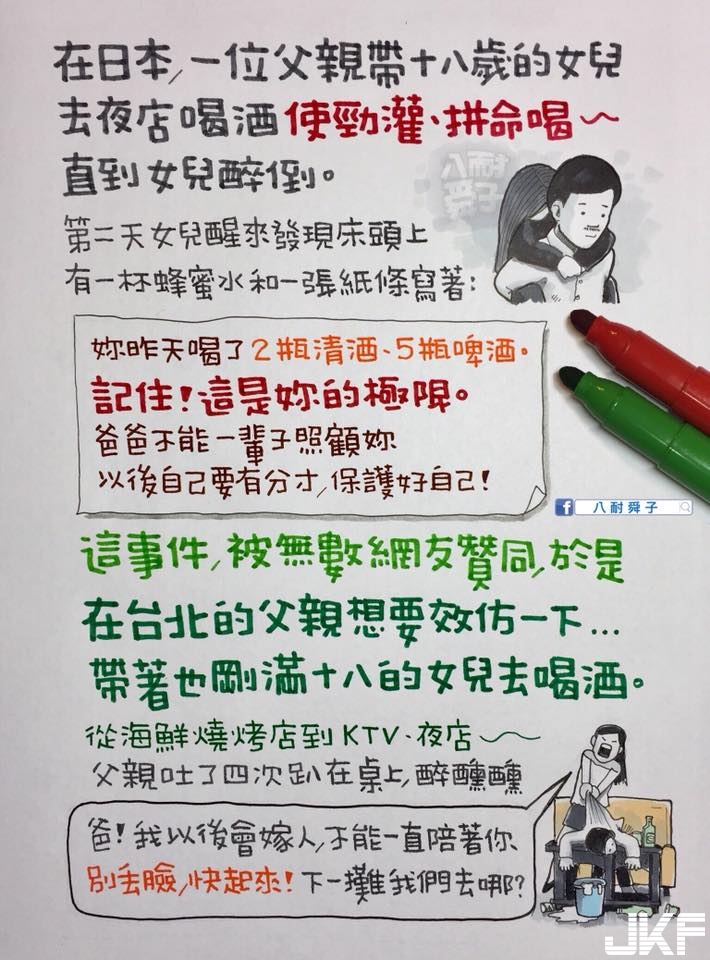 在日本,一位父親帶十八歲的女兒
去夜店喝酒使勁灌、拼命喝~
直到女兒醉倒。
八耐舜子
第二天女兒醒來發現床頭上
有一杯蜂蜜水和一張紙條寫著:
妳昨天喝了2瓶清酒、5瓶啤酒。
記住!這是妳的極限。
爸爸不能一輩子照顧妳
以後自己要有分寸,保護好自己!
f 八耐舜子
這事件,被無數網友贊同,於是
在台北的父親想要效仿一下...
帶著也剛滿十八的女兒去喝酒。
從海鮮燒烤店到KTV、夜店~
父親吐了四次趴在桌上,醉醺醺
爸!我以後會嫁人,不能一直陪著你、
別丟臉,快起來!下一攤我們去哪?
JKF